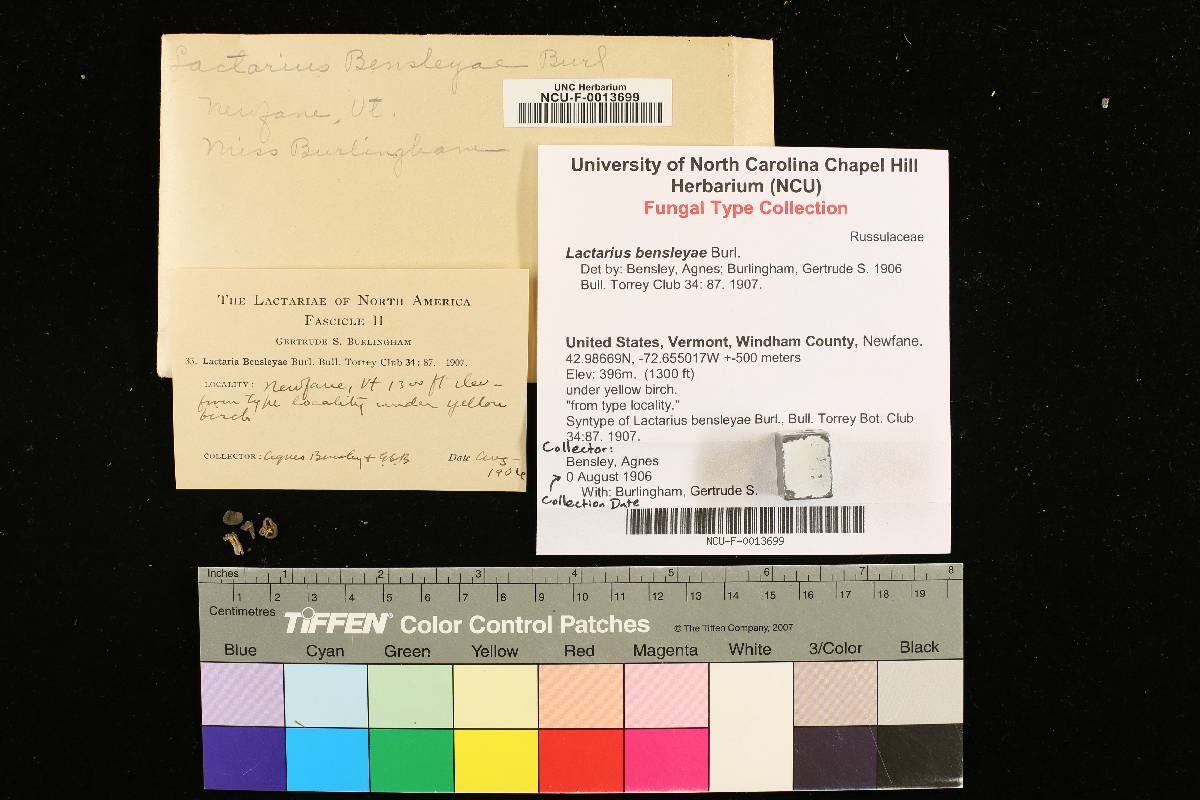 Lactarius Bensleyae Burl
Newfane, Vt.
Miss Burlingham
UNC Herbarium
NCU-F-0013699
University of North Carolina Chapel Hill
Herbarium (NCU)
Fungal Type Collection
Russulaceae
Lactarius bensleyae Burl.
Det by: Bensley, Agnes; Burlingham, Gertrude S. 1906
Bull. Torrey Club 34: 87. 1907.
United States, Vermont, Windham County, Newfane.
42.98669N, -72.655017W +-500 meters
Elev: 396m. (1300 ft)
under yellow birch.
"from type locality."
Syntype of Lactarius bensleyae Burl., Bull. Torrey Bot. Club
34:87. 1907.
Collector:
Bensley, Agnes
0 August 1906
With: Burlingham, Gertrude S.
Collection Date
NCU-F-0013699
The Lactariae of North America
Fascicle II
Gertrude S. Burlingham
35. Lactaria Bensleyae Burl. Bull. Torrey Club 34: 87. 1907.
Locality: Newfane, Vt 1300 ft elev-
from type locality under yellow
birch
Collector: Agnes Bensley + G.S.B Date Aug-
1906
Inches 1 2 3 4 5 6 7 8
1 2 3 4 5 6 7 8 9 10 11 12 13 14 15 16 17 18 19
Centimetres
TIFFEN® Color Control Patches © The Tiffen Company, 2007
Blue Cyan Green Yellow Red Magenta White 3/Color Black